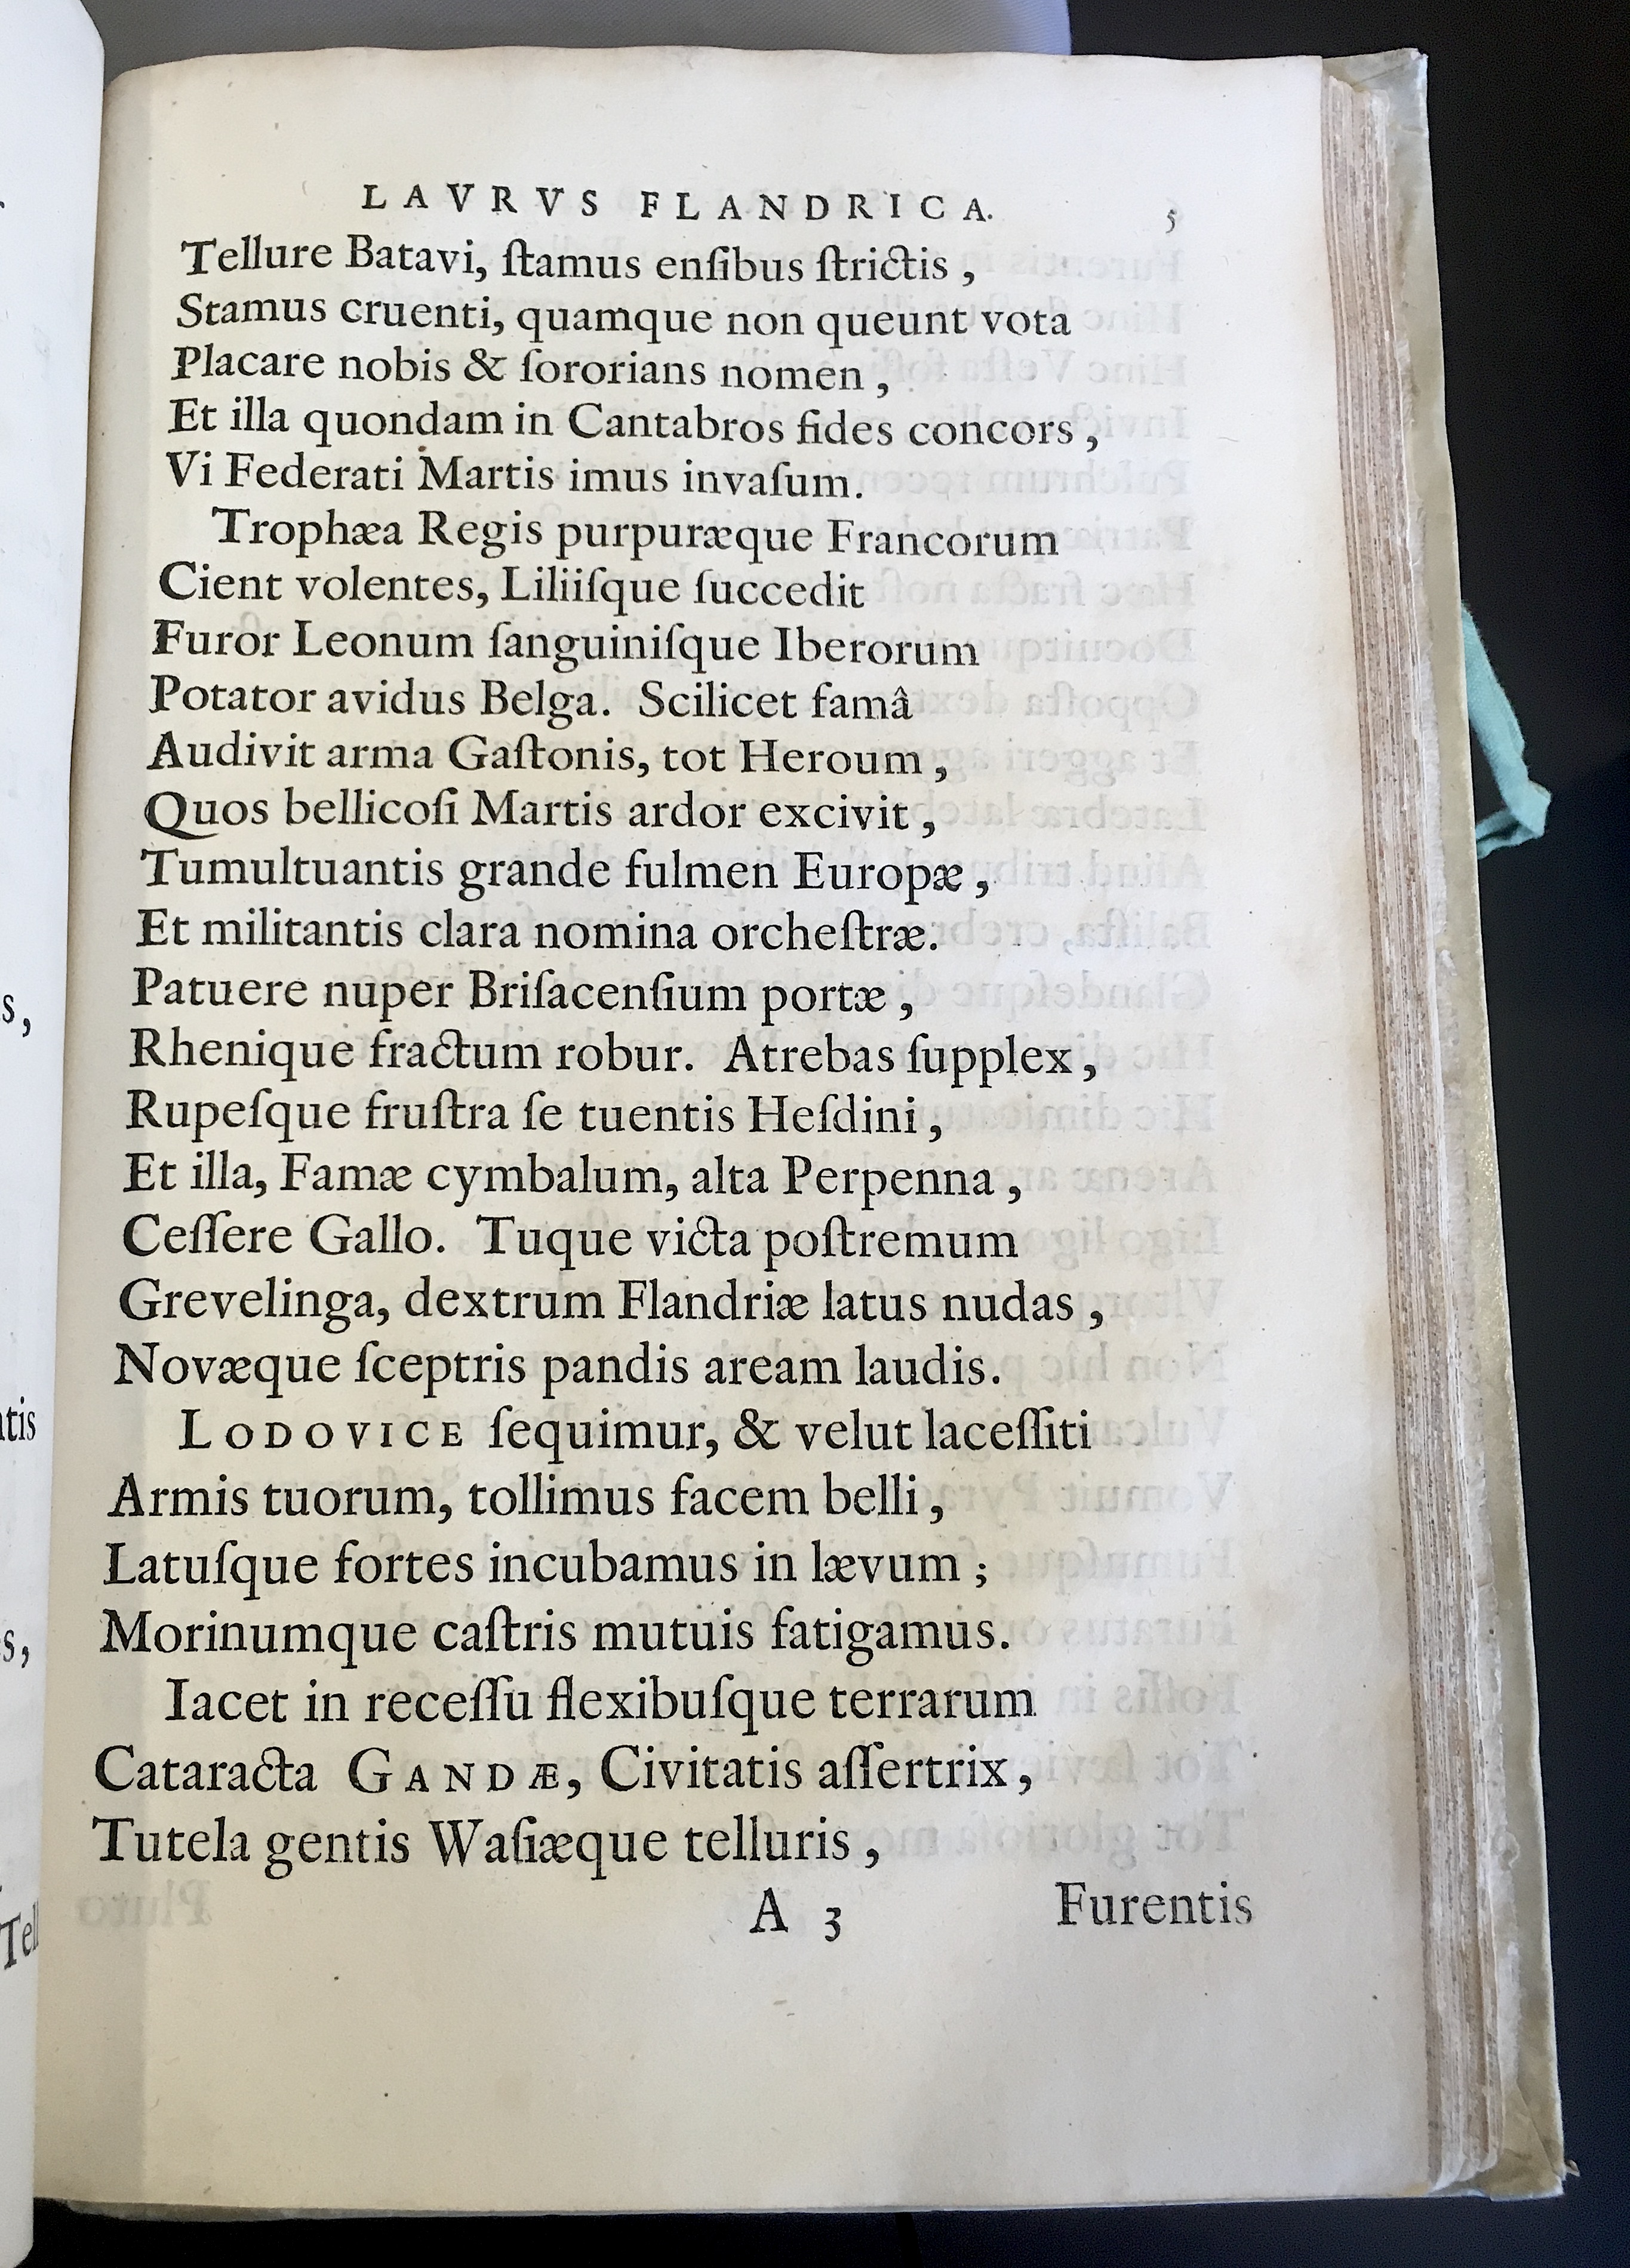 LAVRVS FLANDRICA. 5
Tellure Batavi, ſtamus enſibus ſtrictis,
Stamus cruenti, quamque non queunt vota
Placare nobis & ſororians nomen,
Et illa quondam in Cantabros fides concors,
Vi Federati Martis imus invaſum.
Trophæa Regis purpuræque Francorum
Cient volentes, Liliiſque ſuccedit
Furor Leonum ſanguiniſque Iberorum
Potator avidus Belga. Scilicet famâ
Audivit arma Gaſtonis, tot Heroum,
Quos bellicoſi Martis ardor excivit,
Tumultuantis grande fulmen Europæ,
Et militantis clara nomina orcheſtræ.
Patuere nuper Briſacenſium portæ,
Rhenique fractum robur. Atrebas ſupplex,
Rupeſque fruſtra ſe tuentis Heſdini,
Et illa, Famæ cymbalum, alta Perpenna,
Ceſſere Gallo. Tuque victa poſtremum
Grevelinga, dextrum Flandriæ latus nudas,
Novæque ſceptris pandis aream laudis.
LODOVICE ſequimur, & velut laceſſiti
Armis tuorum, tollimus facem belli,
Latuſque fortes incubamus in lævum;
Morinumque caſtris mutuis fatigamus.
Iacet in receſſu flexibuſque terrarum
Cataracta GANDÆ, Civitatis aſſertrix,
Tutela gentis Waſiæque telluris,
A 3 Furentis